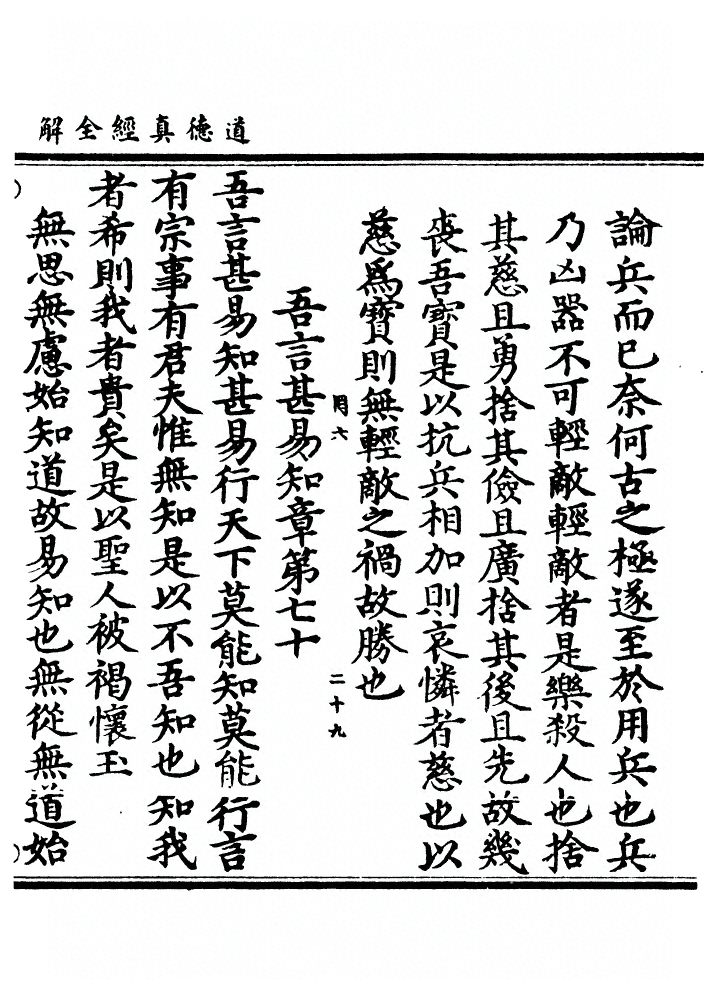 道德真經全解
論兵而已奈何古之極遂至於用兵也兵
乃凶器不可輕敵輕敵者是樂殺人也捨
其慈且勇捨其儉且廣捨其後且先故幾
喪吾寶是以抗兵相加則哀憐者慈也以
慈爲寶則無輕敵之禍故勝也
用六
二十九
吾言甚易知章第七十
吾言甚易知甚易行天下莫能知莫能行言
有宗事有君夫惟無知是以不吾知也知我
者希則我者貴矣是以聖人被褐懷玉
無思無慮始知道故易知也無從無道始